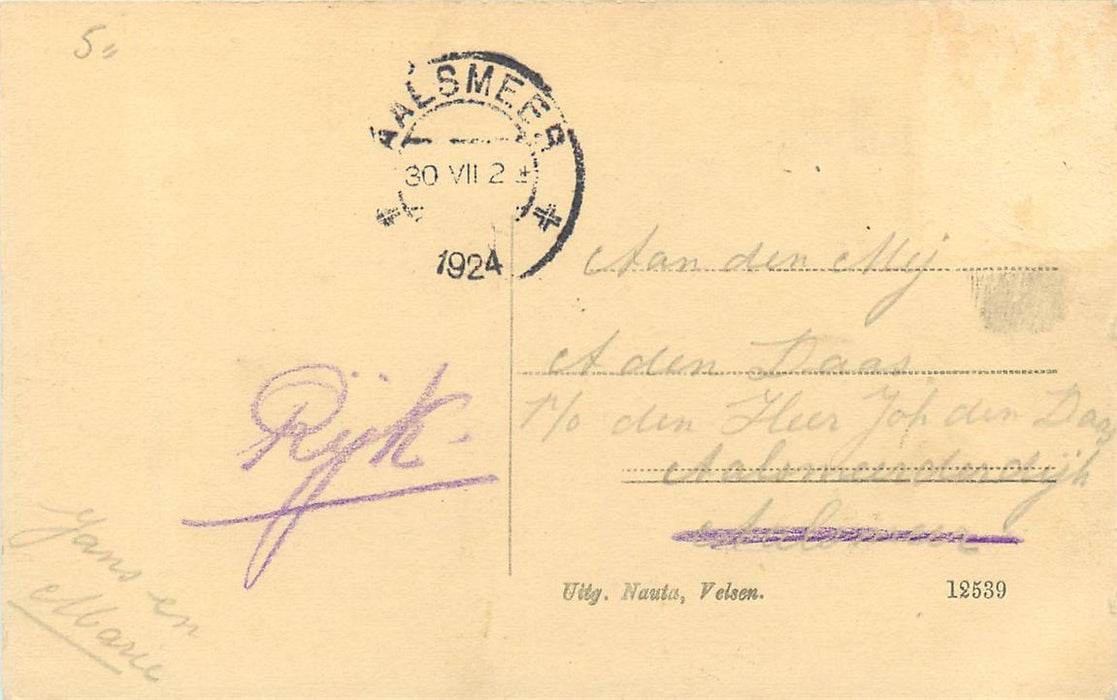 5,,
AALSMEER
30 VII 2
1924
Aan den Mij
A den Daas
P/o den Heer Joh den Daas
Aalsmeerderdijk
Aalsmeer
Rijk.
Jans en
Marie
Uitg. Nauta, Velsen.
12539